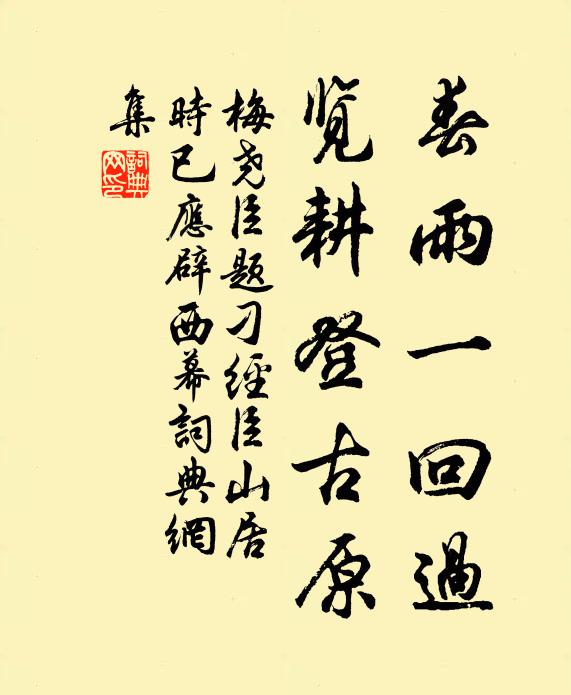 春雨一回過
览耕登古原
梅尧臣题刁經臣山居
時已應辟西幕詞典網
集
詞典
网印